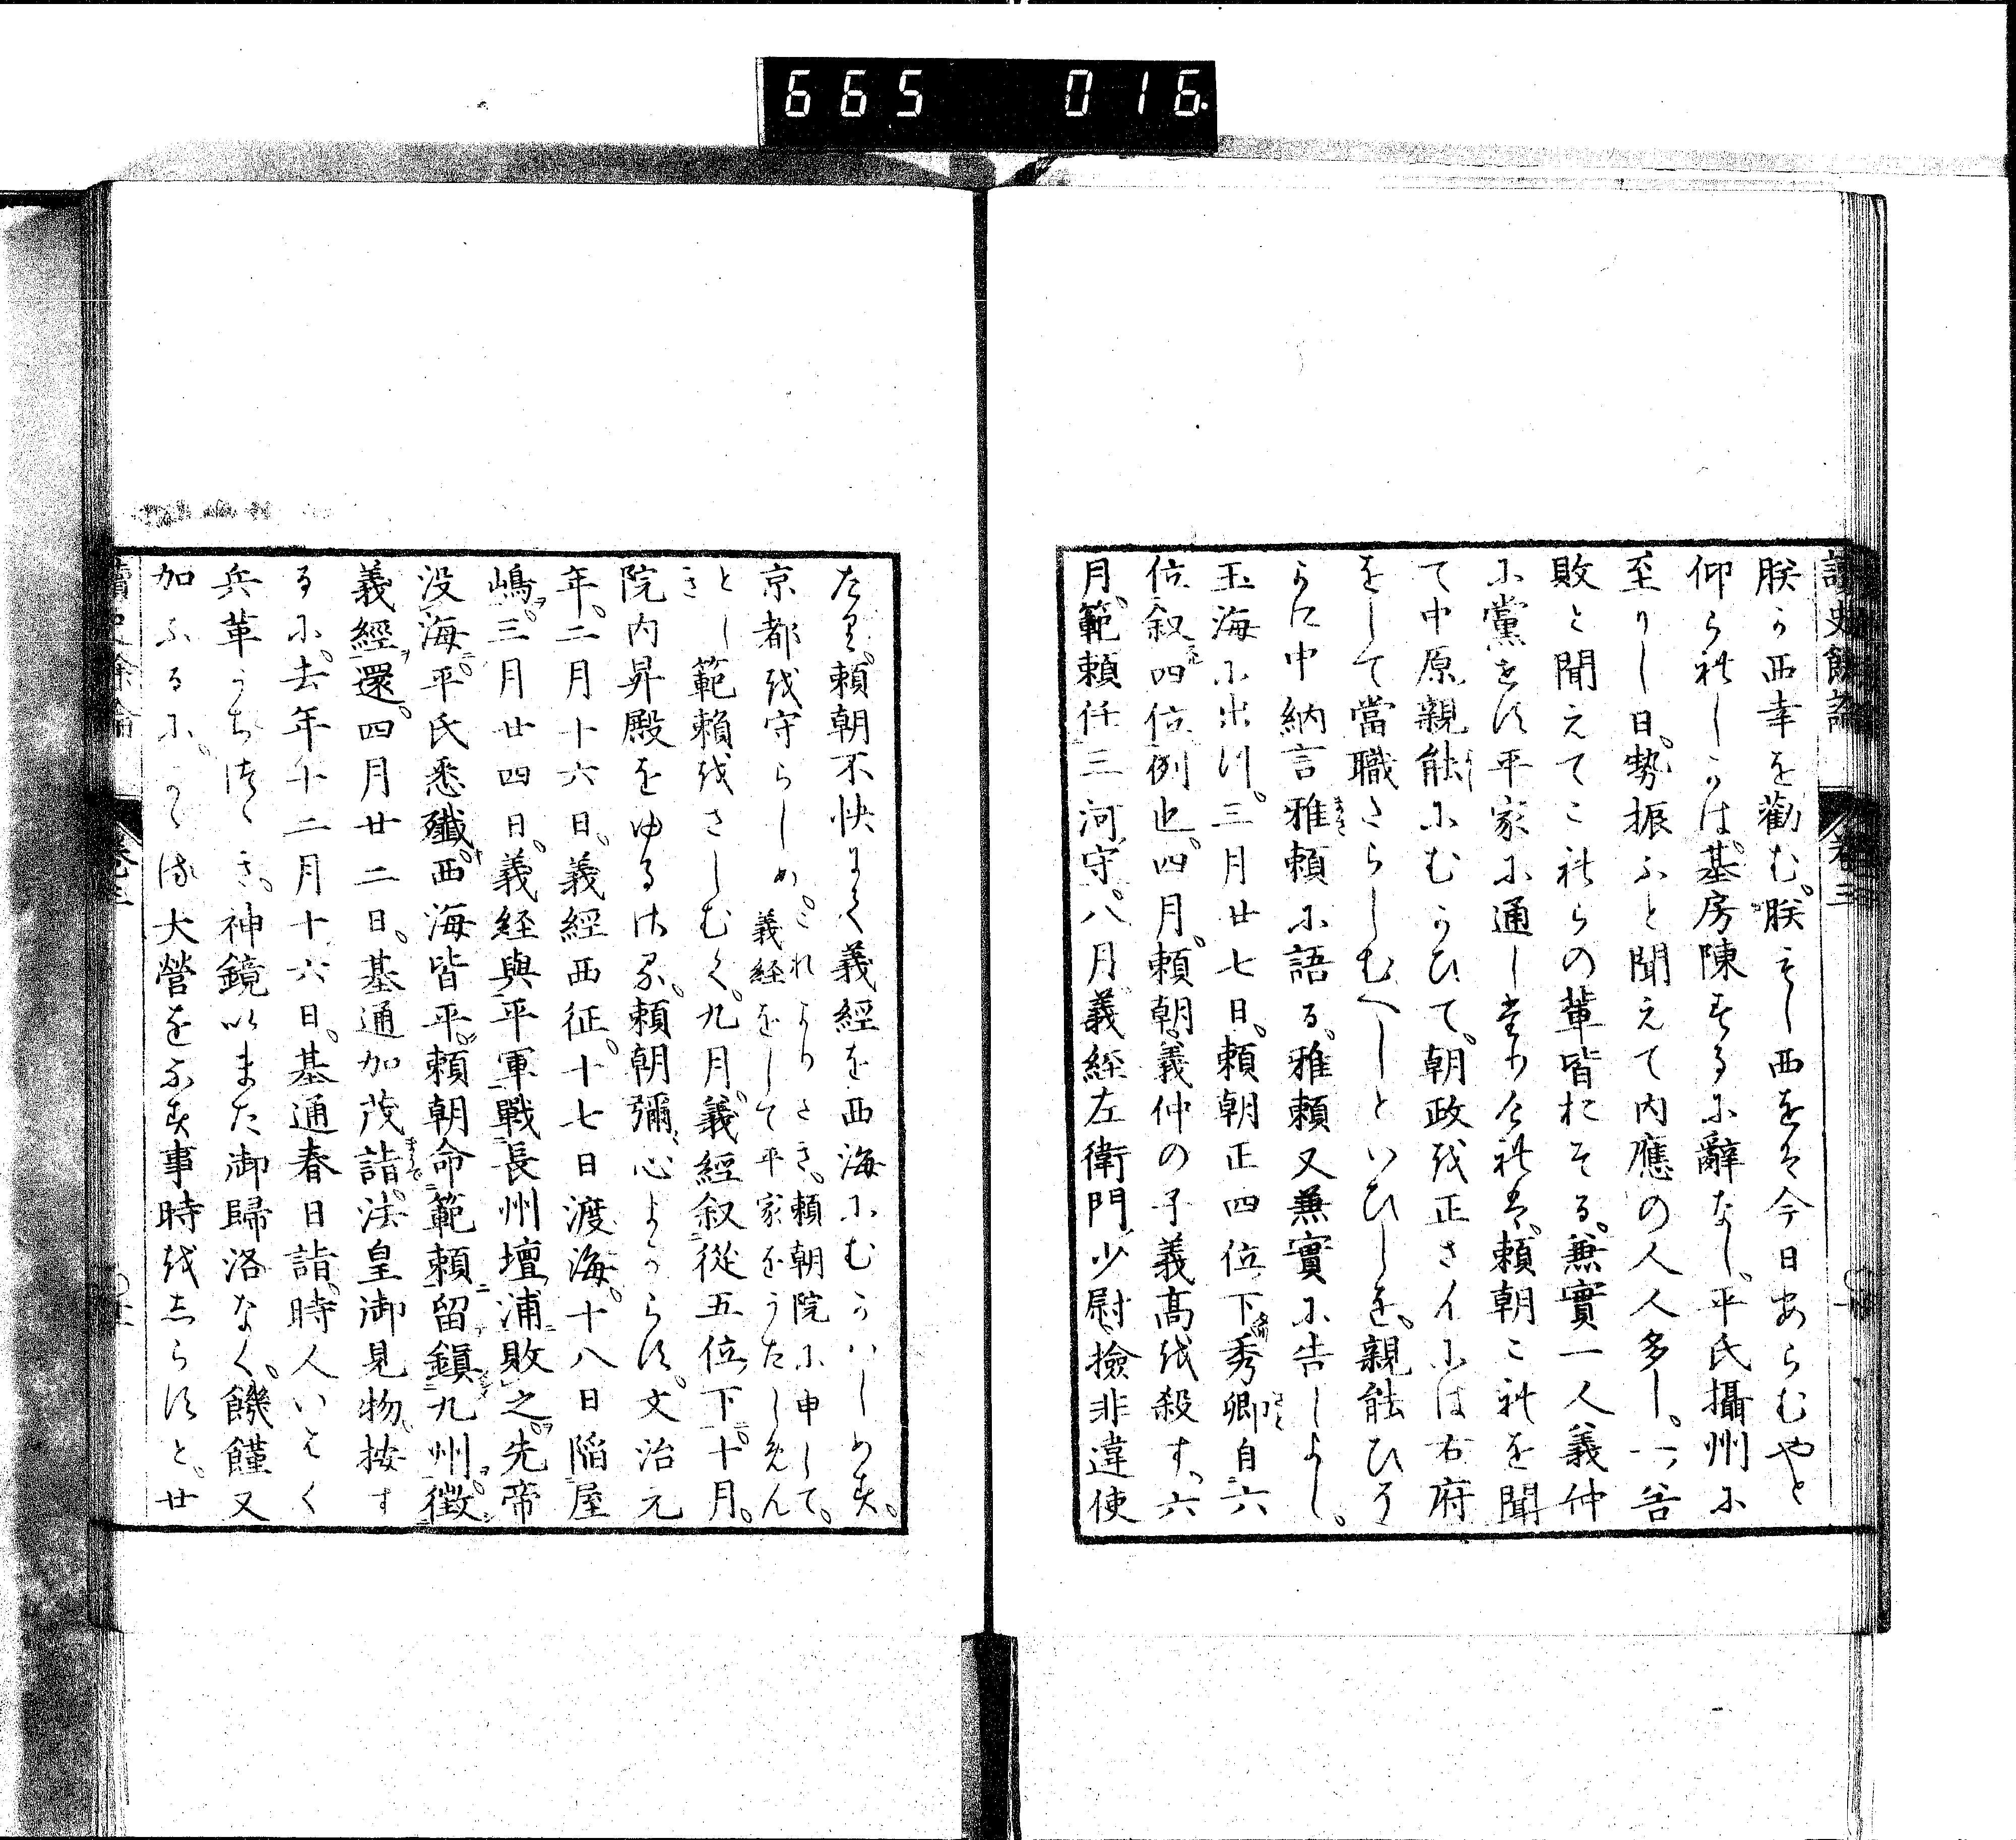 665 016
讀史餘論 卷三
朕か西幸を勸む。朕もし西せは今日あらむやと
仰られしかは。基房陳するに辭なし。平氏攝州に
至りし日。勢振ふと聞えて内應の人人多し。一谷
敗と聞えてこれらの輩皆おそる。兼實一人義仲
に黨せす平家に通し
賴朝これを聞
て中原親能にむかひて。朝政を正さんには右府
をして當職さらしむへしといひしを。親能ひそ
かに中納言雅賴に語る。雅賴又兼實に告しよし。
玉海に出つ。三月廿七日。賴朝正四位下秀卿自六
位叙四位例也。四月。賴朝義仲の子義高を殺す。六
月。範賴任三河守。八月義経左衛門少尉檢非違使
たり。賴朝不快よく義經を西海にむかはしめす。
京都を守らしめ。これよりさき。賴朝院に申して。
義経をして平家をうたしめん
とし範賴をさしむく。九月。義經叙從五位下。十月。
院内昇殿をゆるさる。賴朝彌心よからす。文治元
年。二月十六日。義經西征。十七日渡海。十八日陷屋
嶋。三月廿四日。義経與平軍戰長州壇浦敗之。先帝
没海。平氏悉殲。西海皆平。賴朝命範賴留鎭九州。徴
義經還。四月廿二日。基通加茂詣。法皇御見物。按す
るに。去年十二月十六日。基通春日詣。時人いはく
兵革うちつゝき。神鏡いまた御歸洛なく。饑饉又
加ふるに。かゝる大營をなす事時をしらすと。廿
讀史餘論 卷三